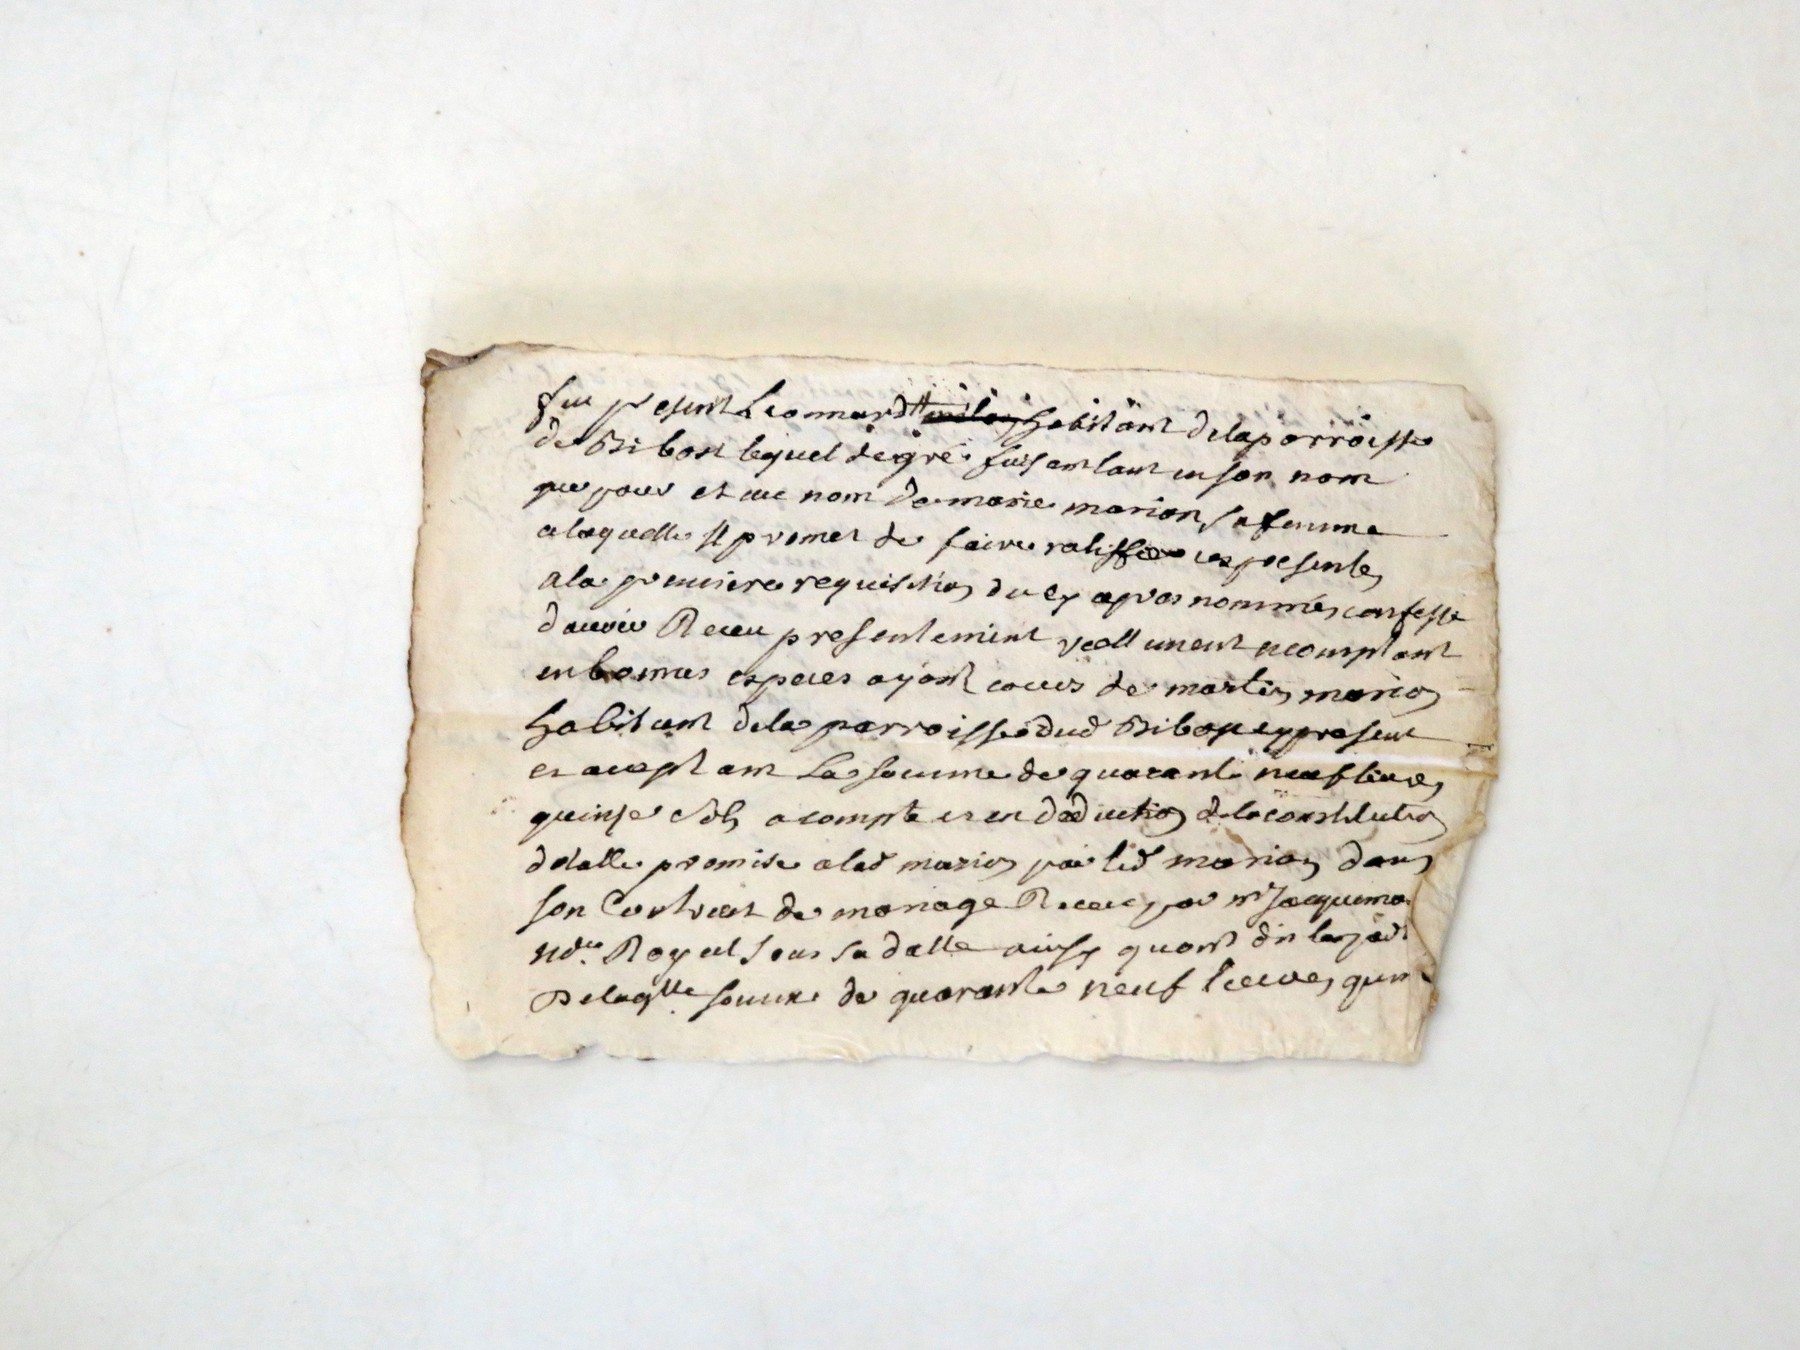 fut present Leonnard habitant dela parroisse
de Bibost lequel de gré faisant tant en son nom
que pour et au nom de marie marion sa femme
a laquelle Il promet de faire ratiffier ces presentes
a la premiere requisition du cy apres nommés confesse
d'avoir Receu presentement reellement et comptant
en bonnes especes ayant cours de martin marion
habitant dela parroisse dud Bibost cy present
et aceptant La somme de quarante neuf livres
quinse sols a compte et en deduction de la constitution
dotalle promise a lad marion par led marion dans
son Contrat de mariage Receu par me Jacquemo
Nore Royal sous sa datte ainsy quont dit les pad
De laqlle somme de quarante neuf livres quin